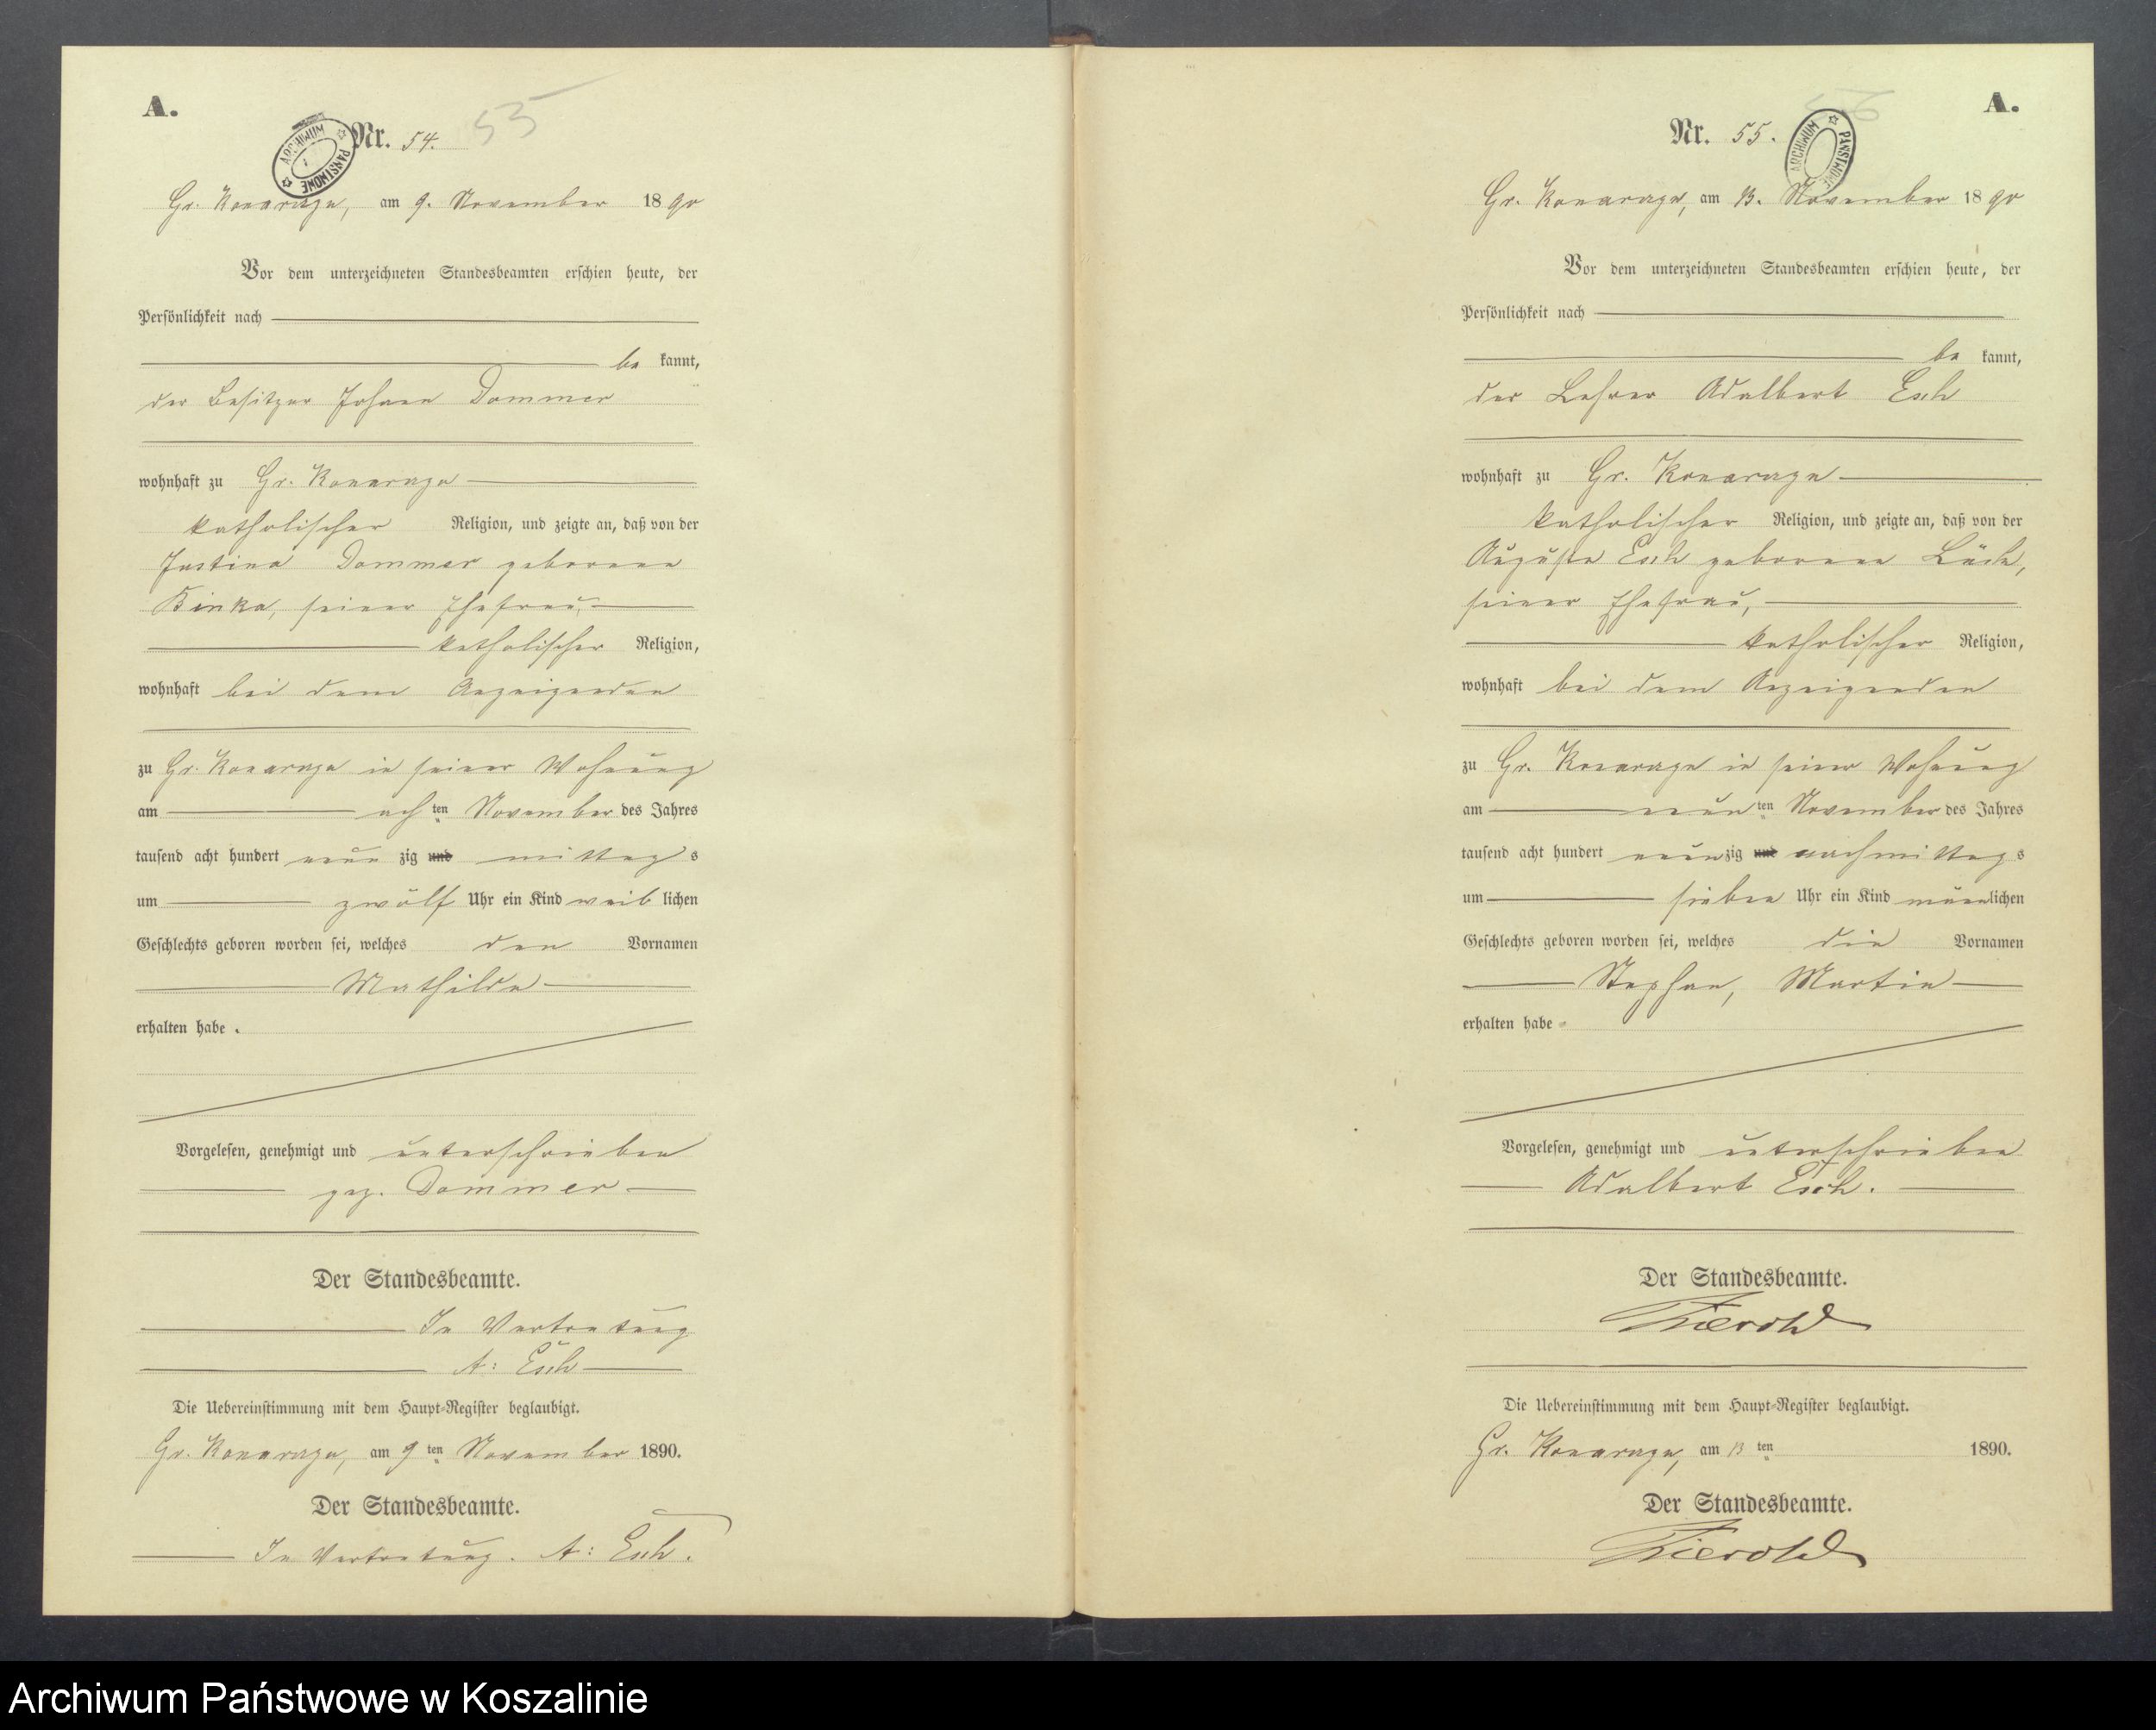 A.
55
ARCHIWUM PAŃSTWOWE
Nr. 54.
Gr. Konarczyn, am 9. November 1890
Vor dem unterzeichneten Standesbeamten erschien heute, der
Persönlichkeit nach
be kannt,
der Besitzer Johann Dommer
wohnhaft zu Gr. Konarczyn
katholischer Religion, und zeigte an, daß von der
Justina Dommer geborene
Binka, seiner Ehefrau,
katholischer Religion,
wohnhaft bei dem Anzeigenden
zu Gr. Konarczyn in seiner Wohnung
am achten November des Jahres
tausend acht hundert neun zig und mittags
um zwölf Uhr ein Kind weiblichen
Geschlechts geboren worden sei, welches den Vornamen
Mathilde
erhalten habe.
Vorgelesen, genehmigt und unterschrieben
gez. Dommer
Der Standesbeamte.
In Vertretung
A: Esch
Die Uebereinstimmung mit dem Haupt-Register beglaubigt.
Gr. Konarczyn, am 9ten November 1890.
Der Standesbeamte.
In Vertretung. A: Esch.
A.
ARCHIWUM PAŃSTWOWE
Nr. 55.
Gr. Konarczyn, am 13. November 1890
Vor dem unterzeichneten Standesbeamten erschien heute, der
Persönlichkeit nach
be kannt,
der Lehrer Adalbert Esch
wohnhaft zu Gr. Konarczyn
katholischer Religion, und zeigte an, daß von der
Auguste Esch geborene Lück,
seiner Ehefrau,
katholischer Religion,
wohnhaft bei dem Anzeigenden
zu Gr. Konarczyn in seiner Wohnung
am neunten November des Jahres
tausend acht hundert neunzig und nachmittags
um sieben Uhr ein Kind männlichen
Geschlechts geboren worden sei, welches die Vornamen
Stephan, Martin
erhalten habe
Vorgelesen, genehmigt und unterschrieben
Adalbert Esch.
Der Standesbeamte.
Die Uebereinstimmung mit dem Haupt-Register beglaubigt.
Gr. Konarczyn, am 13ten 1890.
Der Standesbeamte.
Archiwum Państwowe w Koszalinie